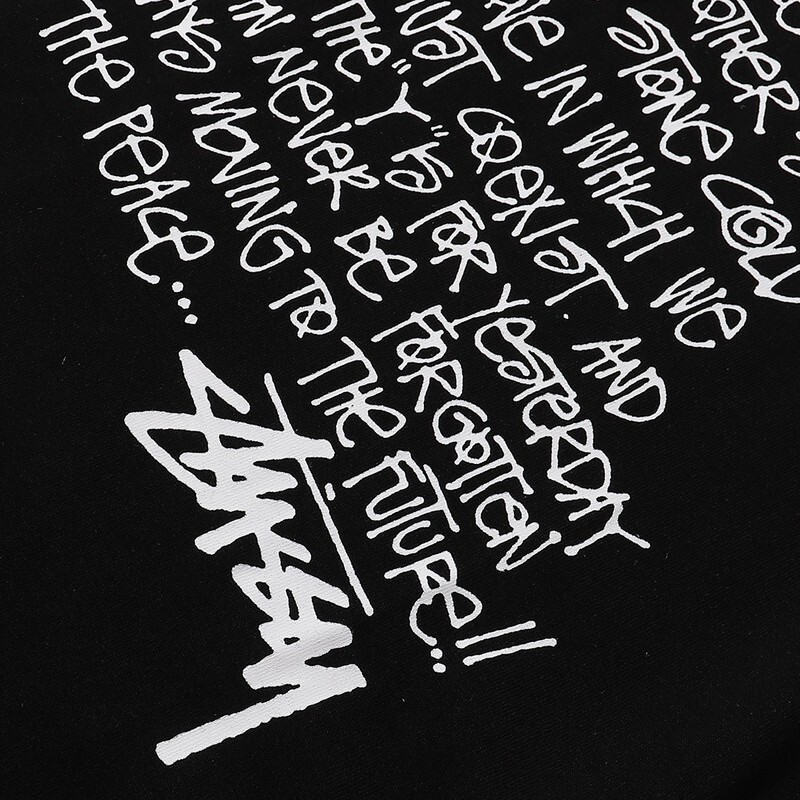 OTHER
STONE
IN WHICH WE
COEXIST AND
THE "Y" IS FOR YESTERDAY
NEVER BE FORGOTTEN
MOVING TO THE FUTURE..!!
THE PEACE...
Stüssy